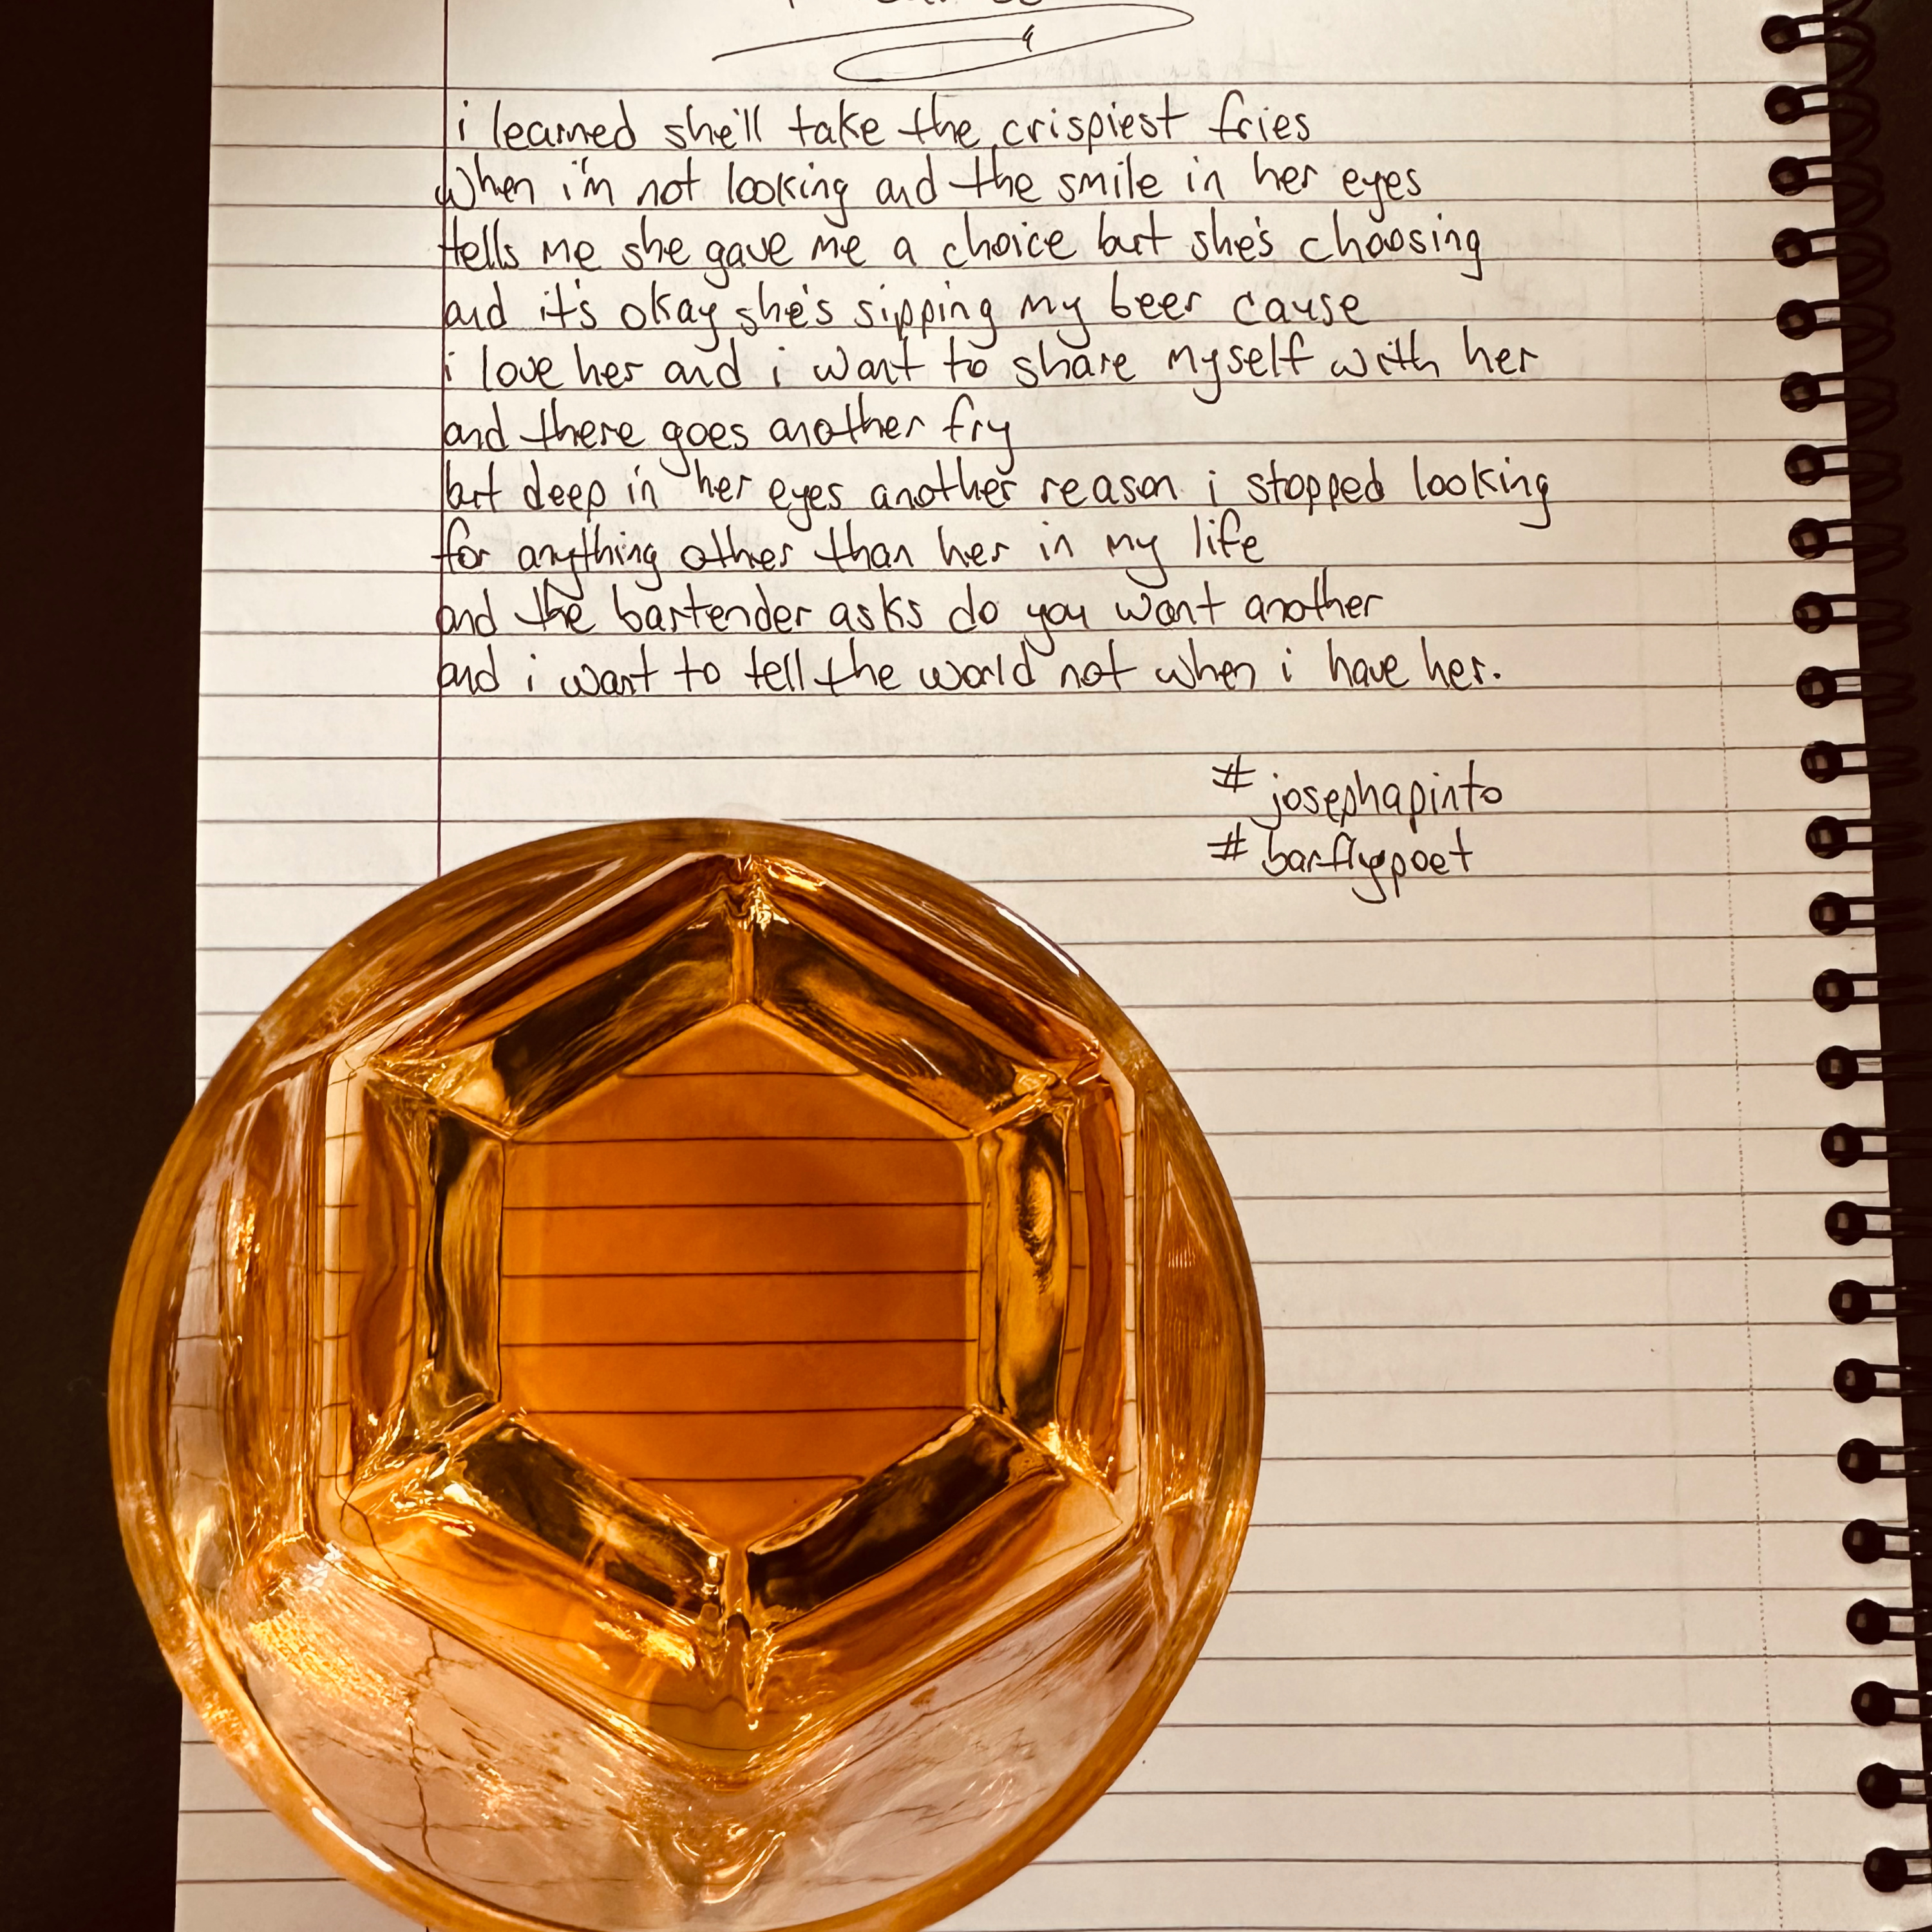 i learned she'll take the crispiest fries
when i'm not looking and the smile in her eyes
tells me she gave me a choice but she's choosing
and it's okay she's sipping my beer cause
i love her and i want to share myself with her
and there goes another fry
but deep in her eyes another reason i stopped looking
for anything other than her in my life
and the bartender asks do you want another
and i want to tell the world not when i have her.
# josephapinto
# barflypoet